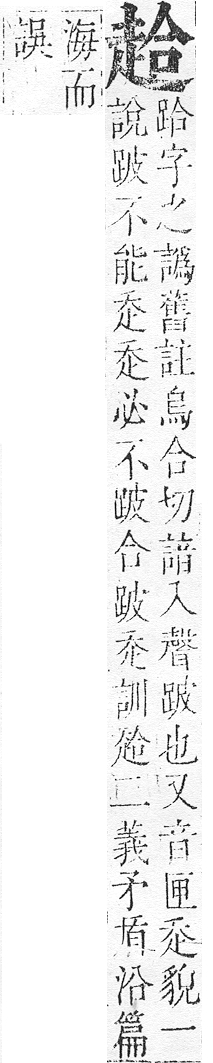 跲字之譌舊註烏合切諳入聲跛也又音匣走貌一
說跛不能走走必不跛合跛走訓二義矛盾沿篇
海而
誤